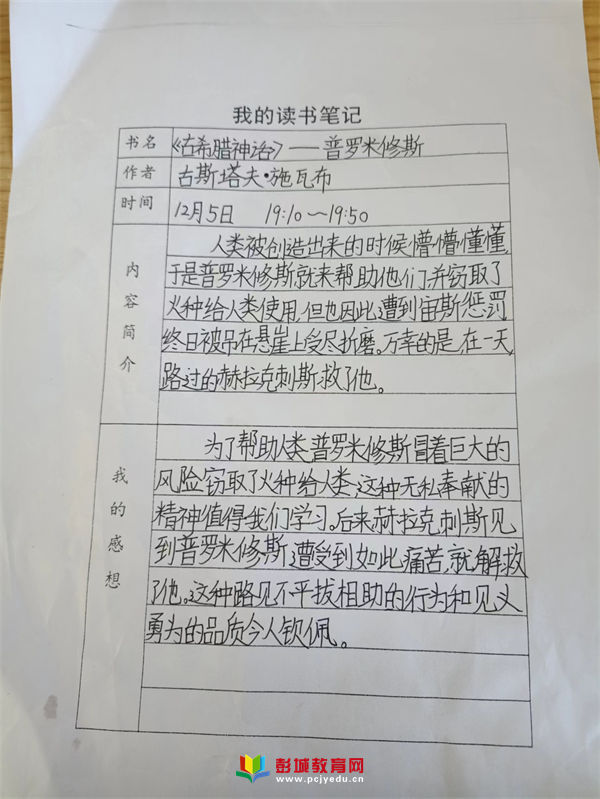 我的读书笔记
书名 《古希腊神话》——普罗米修斯
作者 古斯塔夫·施瓦布
时间 12月5日 19:10~19:50
内容简介
人类被创造出来的时候懵懵懂懂,
于是普罗米修斯就来帮助他们,并窃取了
火种给人类使用,但也因此遭到宙斯惩罚
终日被吊在悬崖上受尽折磨。万幸的是,在一天,
路过的赫拉克刺斯救了他。
我的感想
为了帮助人类,普罗米修斯冒着巨大的
风险窃取了火种给人类,这种无私奉献的
精神值得我们学习。后来赫拉克刺斯见
到普罗米修斯遭受到如此痛苦,就解救
了他。这种路见不平拔相助的行为和见义
勇为的品质令人钦佩。
彭城教育网
www.pcjyedu.cn